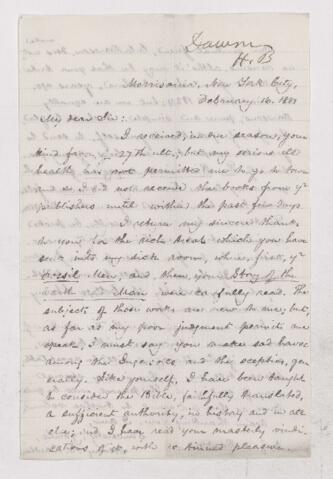 Dawson
H. B
Morrisania, New York City,
February 16. 1881
My dear Sir:
I received, in due season, your
kind favor, of 27th ult.; but my serious ill
health has not permitted me to go to town
and so I did not receive the books from yr
publishers until within the past few days.
I return my sincere thanks
to you for the rich treat which you have
sent into my sick room, where, first, yr
Fossil Men, and then, your Story of the
Earth and Man were carefully read. The
subjects of those works are new to me; but,
as far as my poor judgment permits me
speak, I must say you make sad havoc
among the Ingersolls and the sceptics, gen-
erally. Like yourself, I have been taught
to consider the Bible, faithfully translated,
a sufficient authority, in history and in all
else; and I have read your masterly vindi-
cations of it, with continued pleasure.